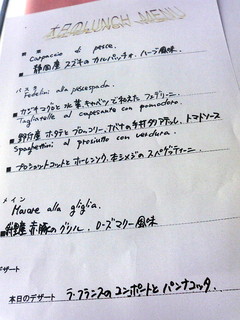 本日のLUNCH MENU
前菜
Carpaccio di pesce.
静岡産 スズキのカルパッチョ、ハーブ風味
パスタ
Fedelini alla pescespada.
カジキマグロと水菜、キャベツで和えた フェデリーニ.
Tagliatelle al capesante con pomodoro.
野付産 ホタテとブロッコリー、ケッパーの手打タリアテッレ、トマトソース
Spaghettini al prosciutto con verdura.
プロシュットコットとホーレンソウ、本シメジのスパゲッティーニ.
メイン
Maiare alla griglia.
赤豚のグリル、ローズマリー風味
デザート
本日のデザート
ラ・フランスのコンポートとパンナコッタ.